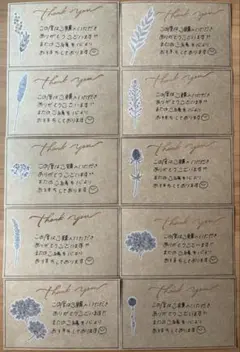 thank you
この度はご購入いただき
ありがとうございます
またのご縁を心より
お待ちしております
thank you
この度はご購入いただき
ありがとうございます
またのご縁を心より
お待ちしております
thank you
この度はご購入いただき
ありがとうございます
またのご縁を心より
お待ちしております
thank you
この度はご購入いただき
ありがとうございます
またのご縁を心より
お待ちしております
thank you
この度はご購入いただき
ありがとうございます
またのご縁を心より
お待ちしております
thank you
この度はご購入いただき
ありがとうございます
またのご縁を心より
お待ちしております
thank you
この度はご購入いただき
ありがとうございます
またのご縁を心より
お待ちしております
thank you
この度はご購入いただき
ありがとうございます
またのご縁を心より
お待ちしております
thank you
この度はご購入いただき
ありがとうございます
またのご縁を心より
お待ちしております
thank you
この度はご購入いただき
ありがとうございます
またのご縁を心より
お待ちしております